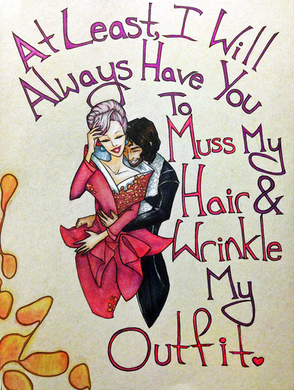 At Least, I Will
Always Have You
To
Muss My
Hair &
Wrinkle
My
Outfit.